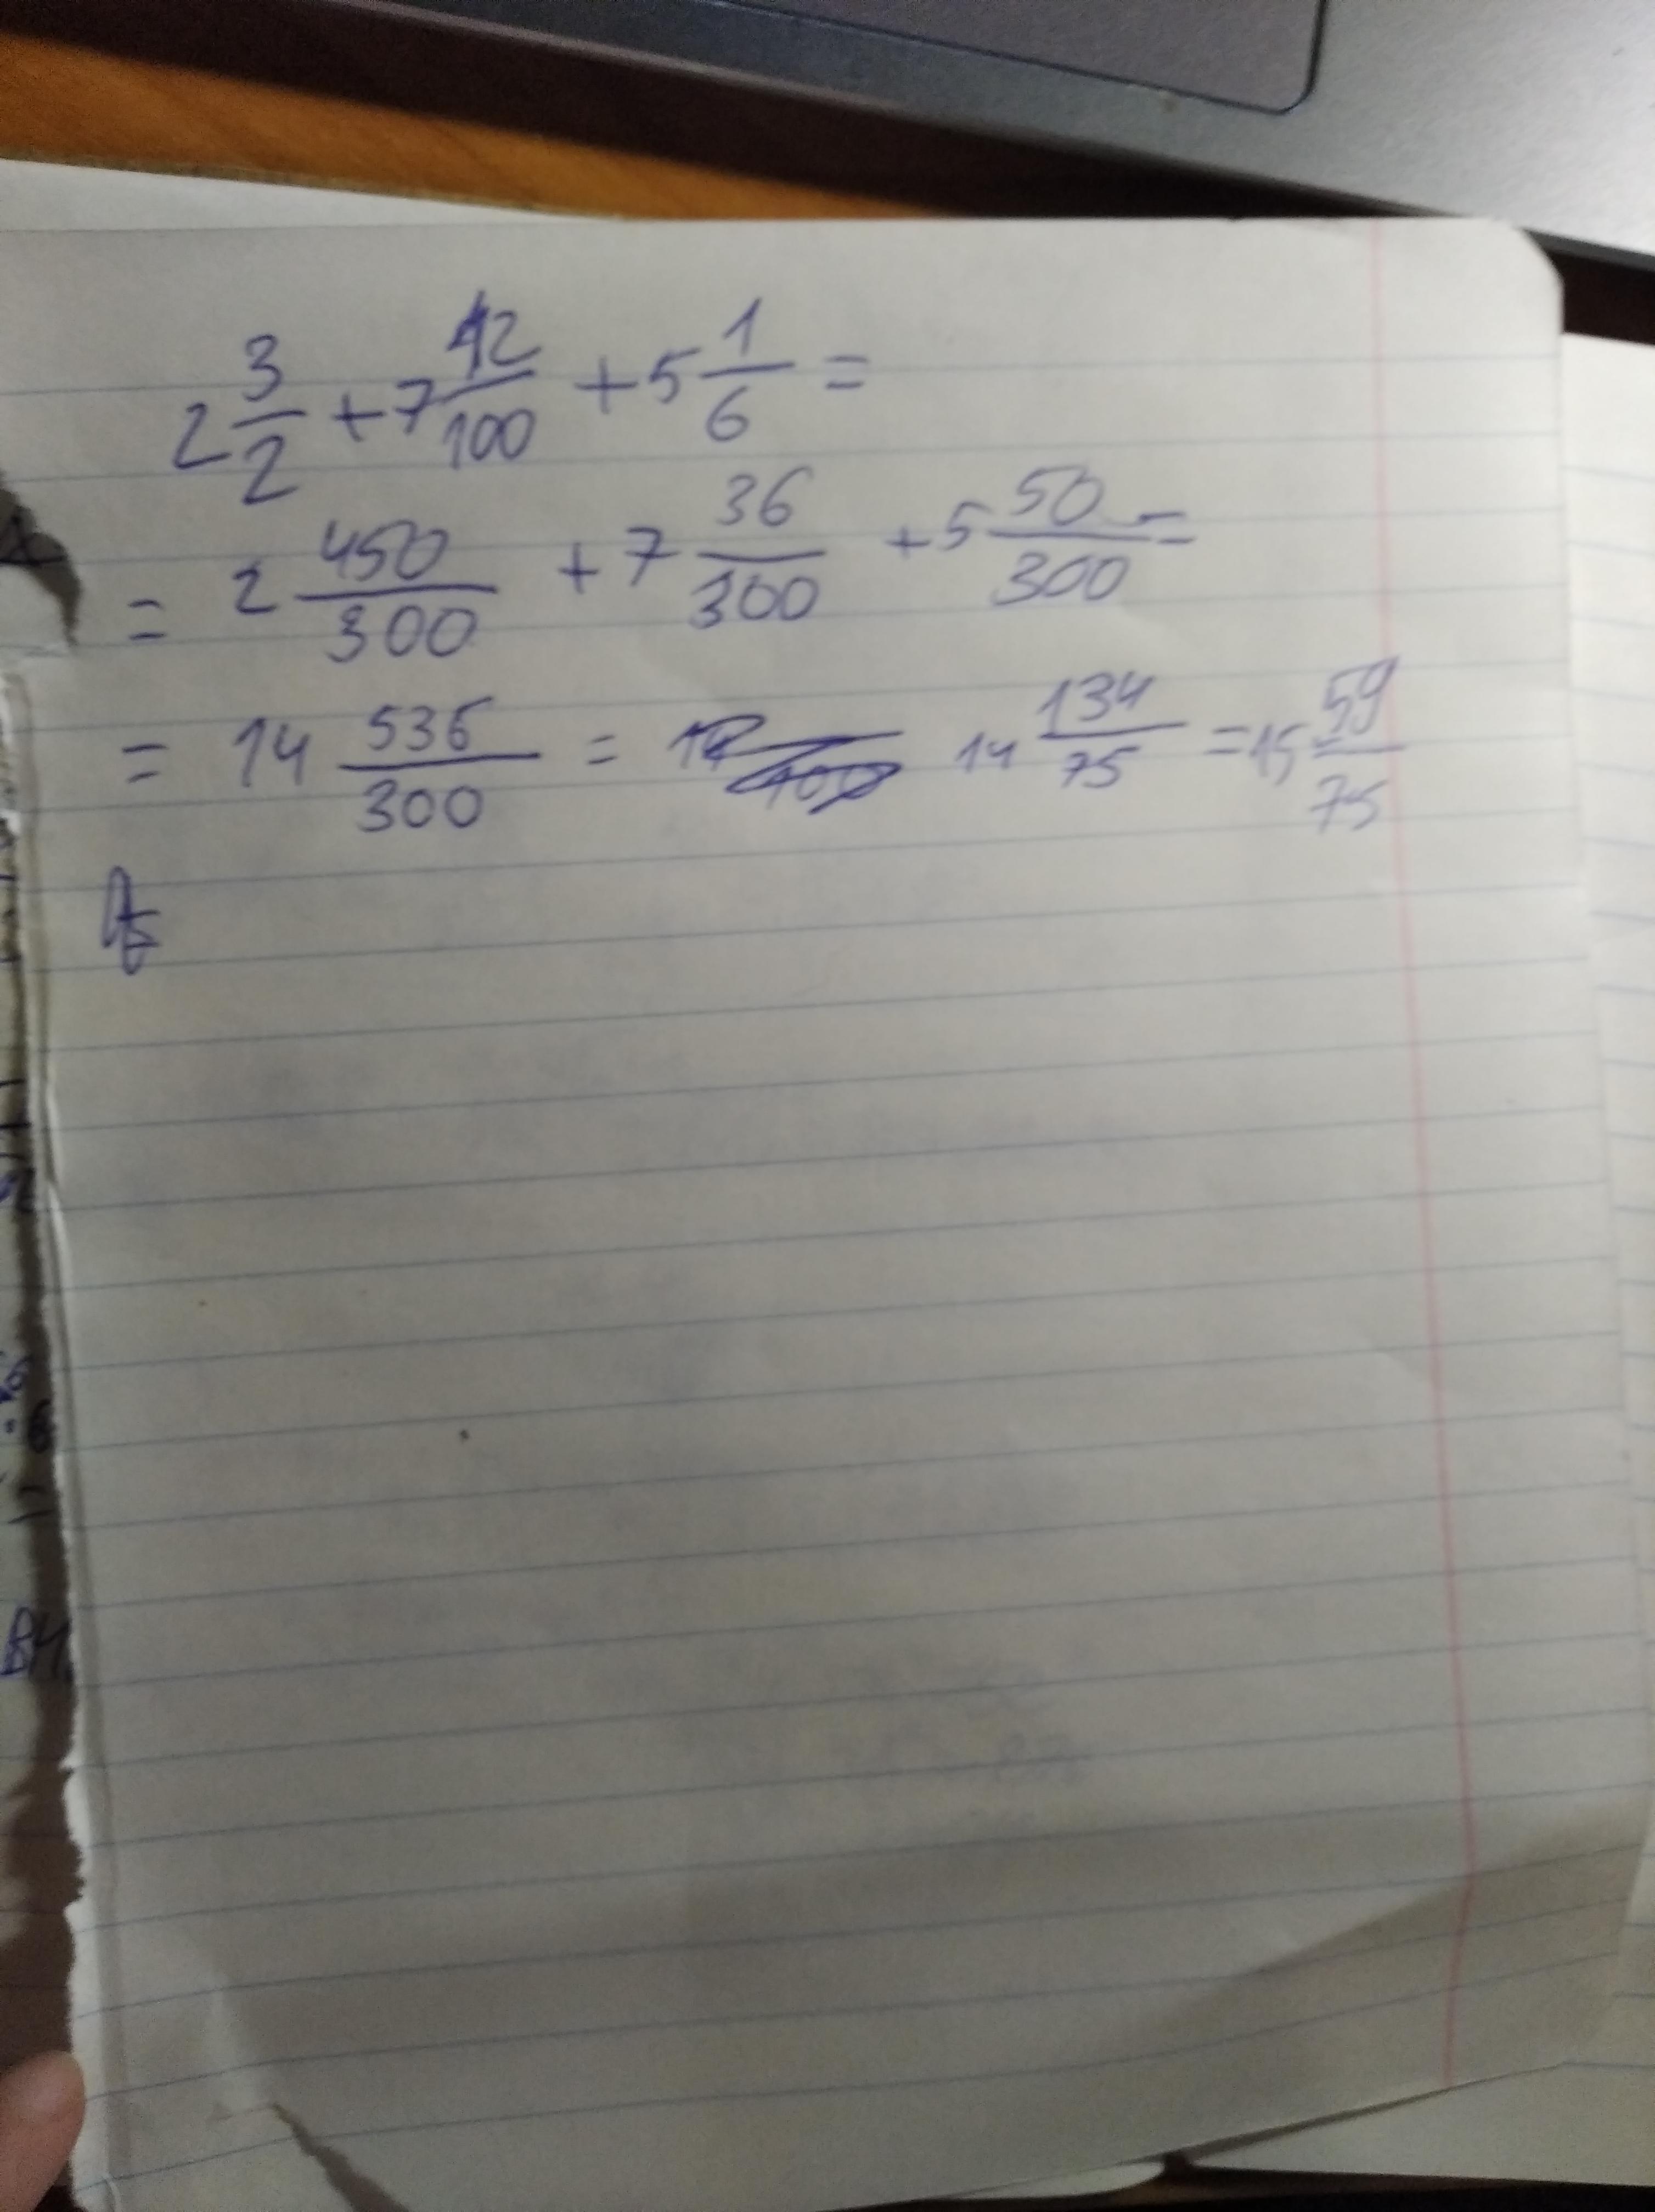 2 3/2 + 7 12/100 + 5 1/6 =
= 2 450/300 + 7 36/300 + 5 50/300 =
= 14 536/300 = 14 134/75 = 15 59/75